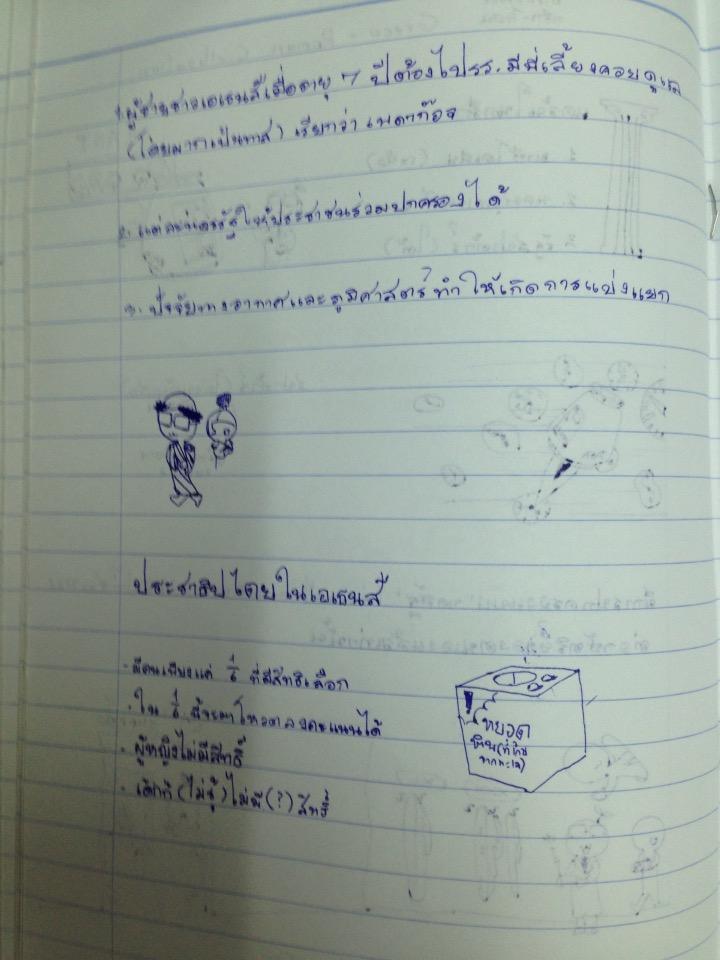 1. ผู้ชายชาวเอเธนส์เมื่ออายุ 7 ปีต้องไปรร. มีพี่เลี้ยงคอยดูแล
(โดยมากเป็นทาส) เรียกว่า เพดาก๊อจ
2. แต่ละนครรัฐให้ประชาชนร่วมปกครองได้
3. ปัจจัยทางอากาศและภูมิศาสตร์ทำให้เกิดการแบ่งแยก
ประชาธิปไตยในเอเธนส์
- มีคนเพียงแค่ 1/6 ที่มีสิทธิเลือก
- ใน 1/6 นั้นมาโหวตลงคะแนนได้
- ผู้หญิงไม่มีสิทธิ์
- (ไม่รู้) ไม่มี (?) สิทธิ์
หยอด
หิน (ที่